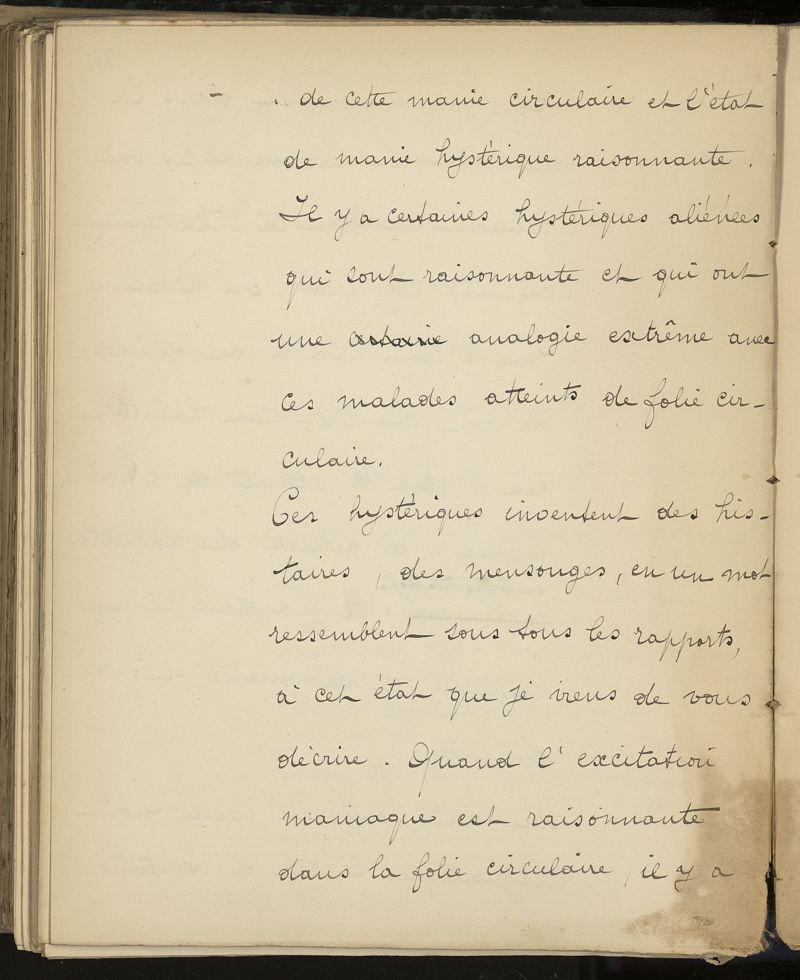 de cette manie circulaire et l'état
de manie hystérique raisonnante.
Il y a certaines hystériques aliénées
qui sont raisonnante et qui ont
une analogie extrême avec
ces malades atteints de folie cir-
culaire.
Ces hystériques inventent des his-
toires, des mensonges, en un mot
ressemblent sous tous les rapports,
à cet état que je viens de vous
décrire. Quand l'excitation
maniaque est raisonnante
dans la folie circulaire, il y a